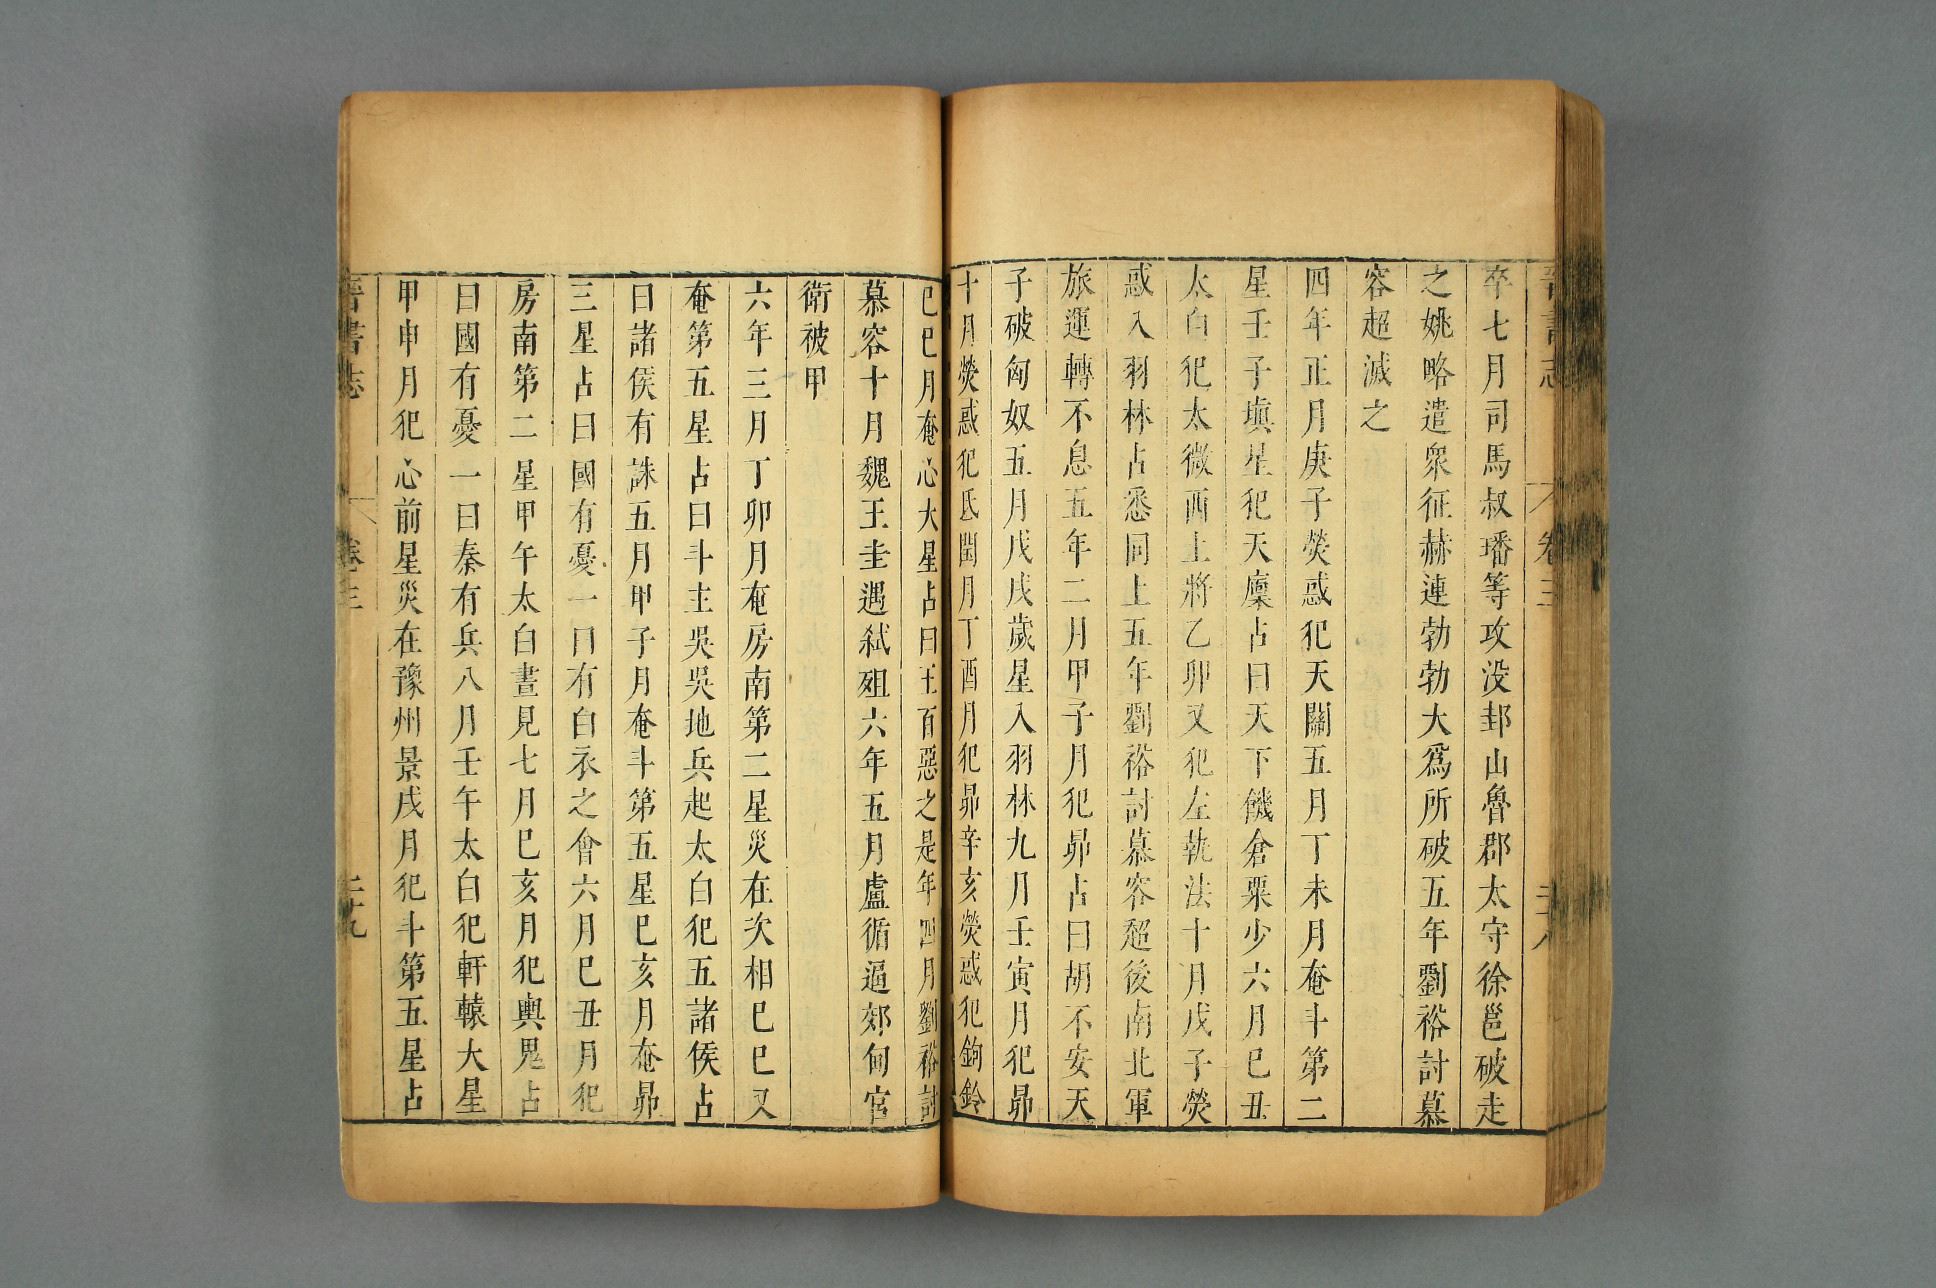 晉書志 卷三 二十八
卒七月司馬叔璠等攻没邽山魯郡太守徐邕破走
之姚略遣衆征赫連勃勃大爲所破五年劉裕討慕
容超滅之
四年正月庚子熒惑犯天關五月丁未月奄斗第二
星壬子塡星犯天廩占曰天下饑倉粟少六月巳丑
太白犯太微西上將乙卯又犯左執法十月戊子熒
惑入羽林占悉同上五年劉裕討慕容超後南北軍
旅運轉不息五年二月甲子月犯昴占曰胡不安天
子破匈奴五月戊戌歲星入羽林九月壬寅月犯昴
十月熒惑犯氐閏月丁酉月犯昴辛亥熒惑犯鉤鈐
巳巳月奄心大星占曰王百惡之是年四月劉裕討
慕容十月魏王圭遇弑殂六年五月盧循逼郊甸宮
衛被甲
六年三月丁卯月奄房南第二星災在次相巳巳又
奄第五星占曰斗主吳吳地兵起太白犯五諸侯占
曰諸侯有誅五月甲子月奄斗第五星巳亥月奄昴
三星占曰國有憂一曰有白衣之會六月巳丑月犯
房南第二星甲午太白晝見七月巳亥月犯輿鬼占
曰國有憂一曰秦有兵八月壬午太白犯軒轅大星
甲申月犯心前星災在豫州景戌月犯斗第五星占
晉書志 卷三 二十九